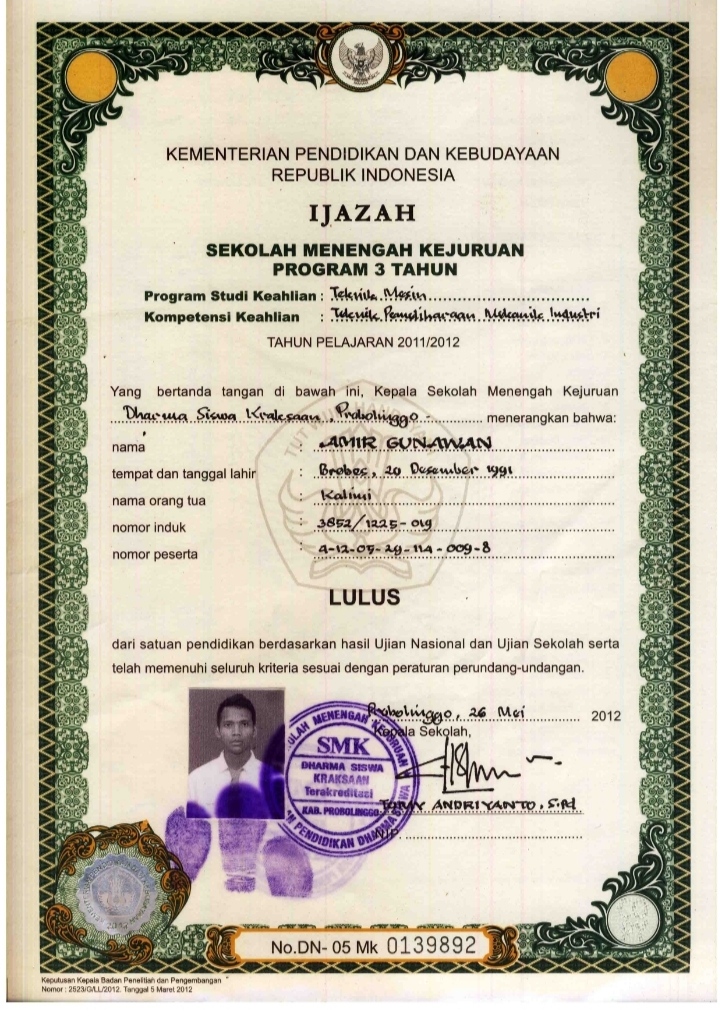 KEMENTERIAN PENDIDIKAN DAN KEBUDAYAAN
REPUBLIK INDONESIA
IJAZAH
SEKOLAH MENENGAH KEJURUAN
PROGRAM 3 TAHUN
Program Studi Keahlian : Teknik Mesin
Kompetensi Keahlian : Teknik Pemeliharaan Mekanik Industri
TAHUN PELAJARAN 2011/2012
Yang bertanda tangan di bawah ini, Kepala Sekolah Menengah Kejuruan
Dharma Siswa Kraksaan, Probolinggo - menerangkan bahwa:
nama : AMIR GUNAWAN
tempat dan tanggal lahir : Brebes, 20 Desember 1991
nama orang tua : Kalimi
nomor induk : 3852/1225-019
nomor peserta : 4-12-05-29-114-009-8
LULUS
dari satuan pendidikan berdasarkan hasil Ujian Nasional dan Ujian Sekolah serta
telah memenuhi seluruh kriteria sesuai dengan peraturan perundang-undangan.
Probolinggo, 26 Mei 2012
Kepala Sekolah,
SEKOLAH MENENGAH KEJURUAN
SMK
DHARMA SISWA
KRAKSAAN
Terakreditasi
KAB. PROBOLINGGO
PENDIDIKAN DHARMA SISWA
TOMY ANDRIYANTO, S.Pd
NIP.
No.DN- 05 Mk 0139892
Keputusan Kepala Badan Penelitian dan Pengembangan
Nomor : 2523/G/LL/2012. Tanggal 5 Maret 2012